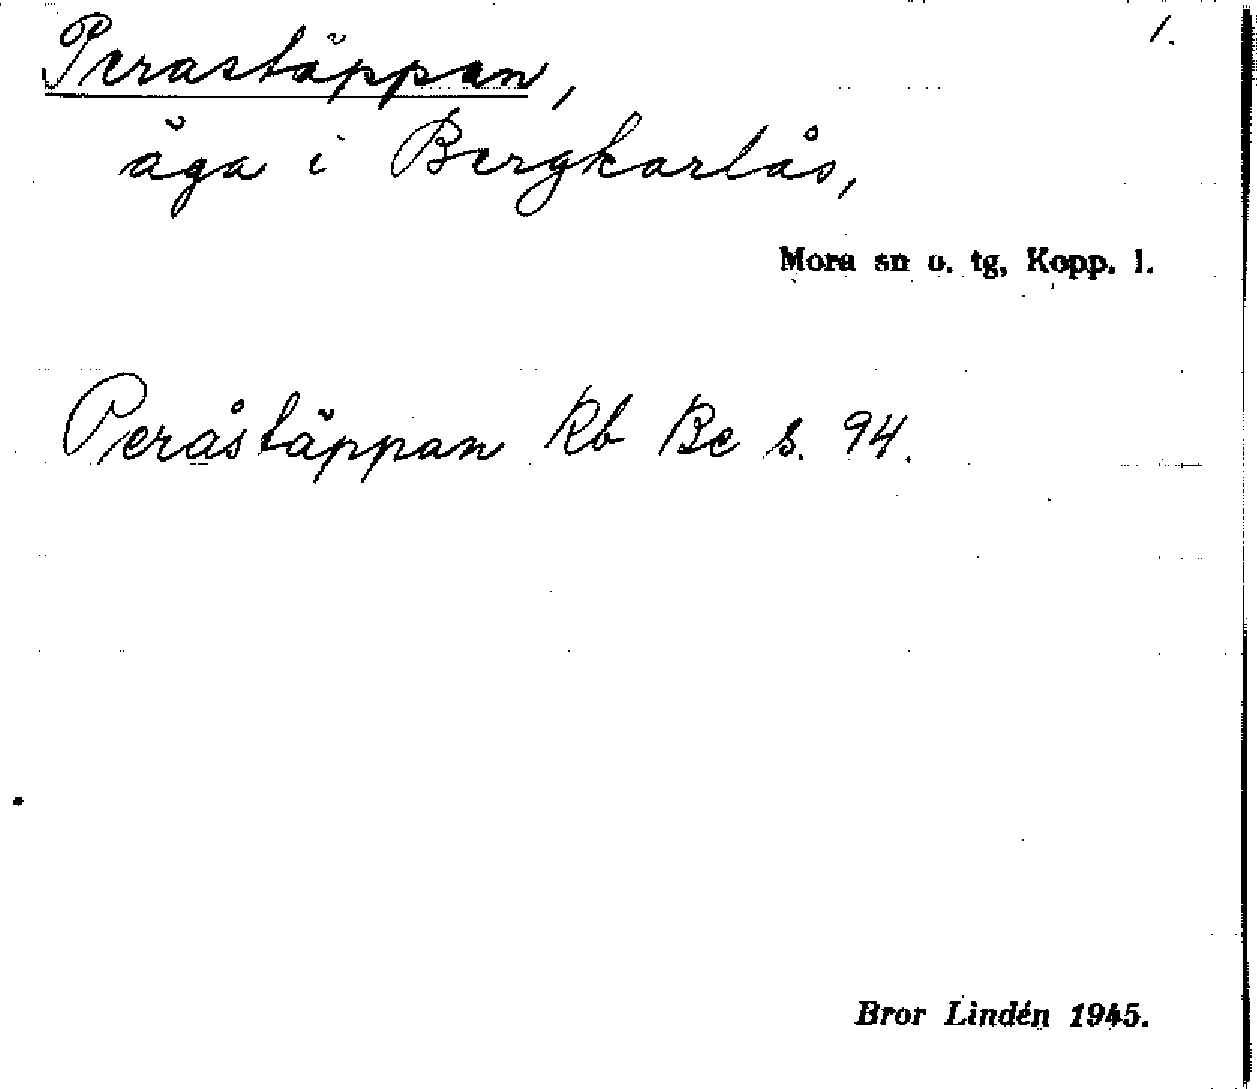 1.
Perastäppan,
äga i Bergkarlås,
Mora sn o. tg, Kopp. l.
Peråstäppan Rb Be s. 94.
Bror Lindén 1945.